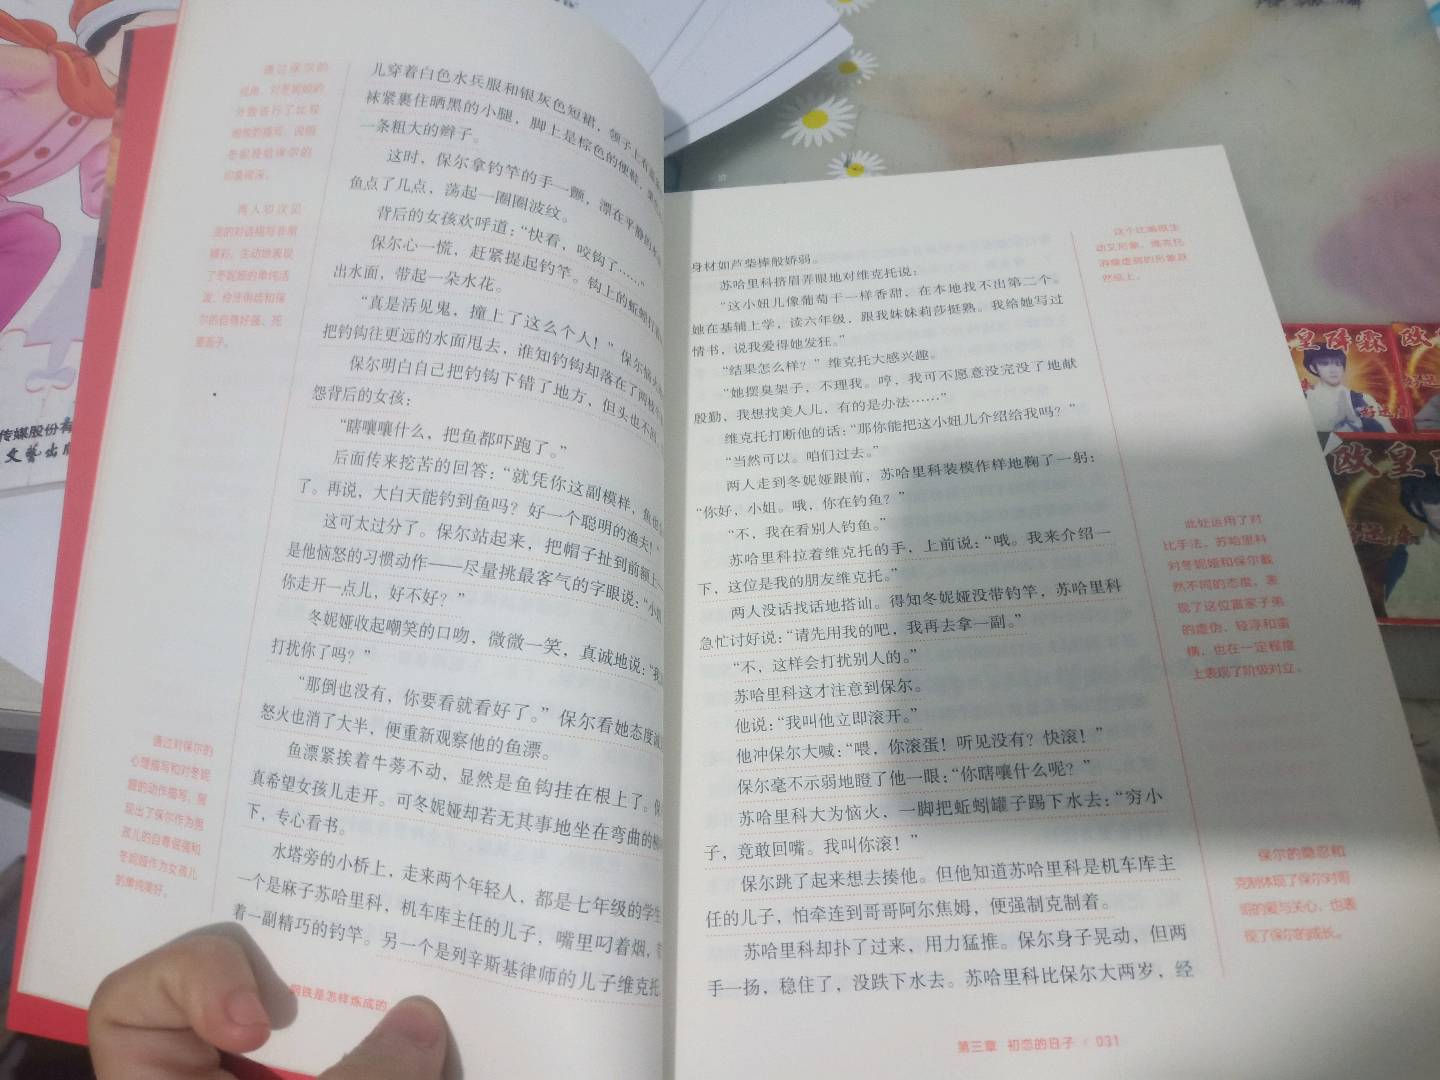 通过保尔的
视角，对冬妮娅的
外貌进行了比较
细致的描写，说明
冬妮娅给保尔的
印象很深。
两人初次见
面的对话描写非常
精彩，生动地表现
了冬妮娅的单纯活
泼、伶牙俐齿和保
尔的自尊好强、死
要面子。
通过对保尔的
心理描写和对冬妮
娅的动作描写，展
现出了保尔作为男
孩儿的自尊倔强和
冬妮娅作为女孩儿
的单纯美好。
儿穿着白色水兵服和银灰色短裙，领子上有
袜紧裹住晒黑的小腿，脚上是棕色的便鞋，
一条粗大的辫子。
这时，保尔拿钓竿的手一颤，漂在平静的水
鱼点了几点，荡起一圈圈波纹。
背后的女孩欢呼道：“快看，咬钩了……”
保尔心一慌，赶紧提起钓竿。钩上的蚯蚓打
出水面，带起一朵水花。
“真是活见鬼，撞上了这么个人！”保尔恼火
把钓钩往更远的水面甩去，谁知钓钩却落在了两枝
保尔明白自己把钓钩下错了地方，但头也不回，
怨背后的女孩：
“瞎嚷嚷什么，把鱼都吓跑了。”
后面传来挖苦的回答：“就凭你这副模样，鱼也
了。再说，大白天能钓到鱼吗？好一个聪明的渔夫！”
这可太过分了。保尔站起来，把帽子扯到前额上
是他恼怒的习惯动作——尽量挑最客气的字眼说：“小
你走开一点儿，好不好？”
冬妮娅收起嘲笑的口吻，微微一笑，真诚地说：“我
打扰你了吗？”
“那倒也没有，你要看就看好了。”保尔看她态度诚
怒火也消了大半，便重新观察他的鱼漂。
鱼漂紧挨着牛蒡不动，显然是鱼钩挂在根上了。保
真希望女孩儿走开。可冬妮娅却若无其事地坐在弯曲的柳
下，专心看书。
水塔旁的小桥上，走来两个年轻人，都是七年级的学生
一个是麻子苏哈里科，机车库主任的儿子，嘴里叼着烟，
着一副精巧的钓竿。另一个是列辛斯基律师的儿子维克托
钢铁是怎样炼成的
身材如芦柴棒般娇弱。
苏哈里科挤眉弄眼地对维克托说：
“这小妞儿像葡萄干一样香甜，在本地找不出第二个。
她在基辅上学，读六年级，跟我妹妹莉莎挺熟。我给她写过
情书，说我爱得她发狂。”
“结果怎么样？”维克托大感兴趣。
“她摆臭架子，不理我。哼，我可不愿意没完没了地献
殷勤，我想找美人儿，有的是办法……”
维克托打断他的话：“那你能把这小妞儿介绍给我吗？”
“当然可以。咱们过去。”
两人走到冬妮娅跟前，苏哈里科装模作样地鞠了一躬：
“你好，小姐。哦，你在钓鱼？”
“不，我在看别人钓鱼。”
苏哈里科拉着维克托的手，上前说：“哦。我来介绍一
下，这位是我的朋友维克托。”
两人没话找话地搭讪。得知冬妮娅没带钓竿，苏哈里科
急忙讨好说：“请先用我的吧，我再去拿一副。”
“不，这样会打扰别人的。”
苏哈里科这才注意到保尔。
他说：“我叫他立即滚开。”
他冲保尔大喊：“喂，你滚蛋！听见没有？快滚！”
保尔毫不示弱地瞪了他一眼：“你瞎嚷什么呢？”
苏哈里科大为恼火，一脚把蚯蚓罐子踢下水去：“穷小
子，竟敢回嘴。我叫你滚！”
保尔跳了起来想去揍他。但他知道苏哈里科是机车库主
任的儿子，怕牵连到哥哥阿尔焦姆，便强制克制着。
苏哈里科却扑了过来，用力猛推。保尔身子晃动，但两
手一扬，稳住了，没跌下水去。苏哈里科比保尔大两岁，经
这个比喻既生
动又形象，维克托
然纸上。
此处运用了对
比手法，苏哈里科
对冬妮娅和保尔截
然不同的态度，表
现了这位富家子弟
的虚伪、轻浮和蛮
横，也在一定程度
上表现了阶级对立。
保尔的隐忍和
克制体现了保尔对哥
哥的爱与关心，也表
现了保尔的成长。
第三章 初恋的日子 / 031
传媒股份有
文艺出版
皇降霖
欧皇
好运